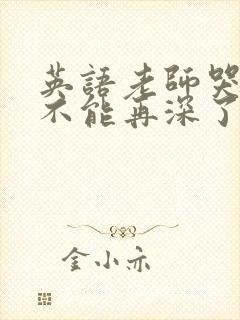 英語老師哭
不能再深了
金小亦